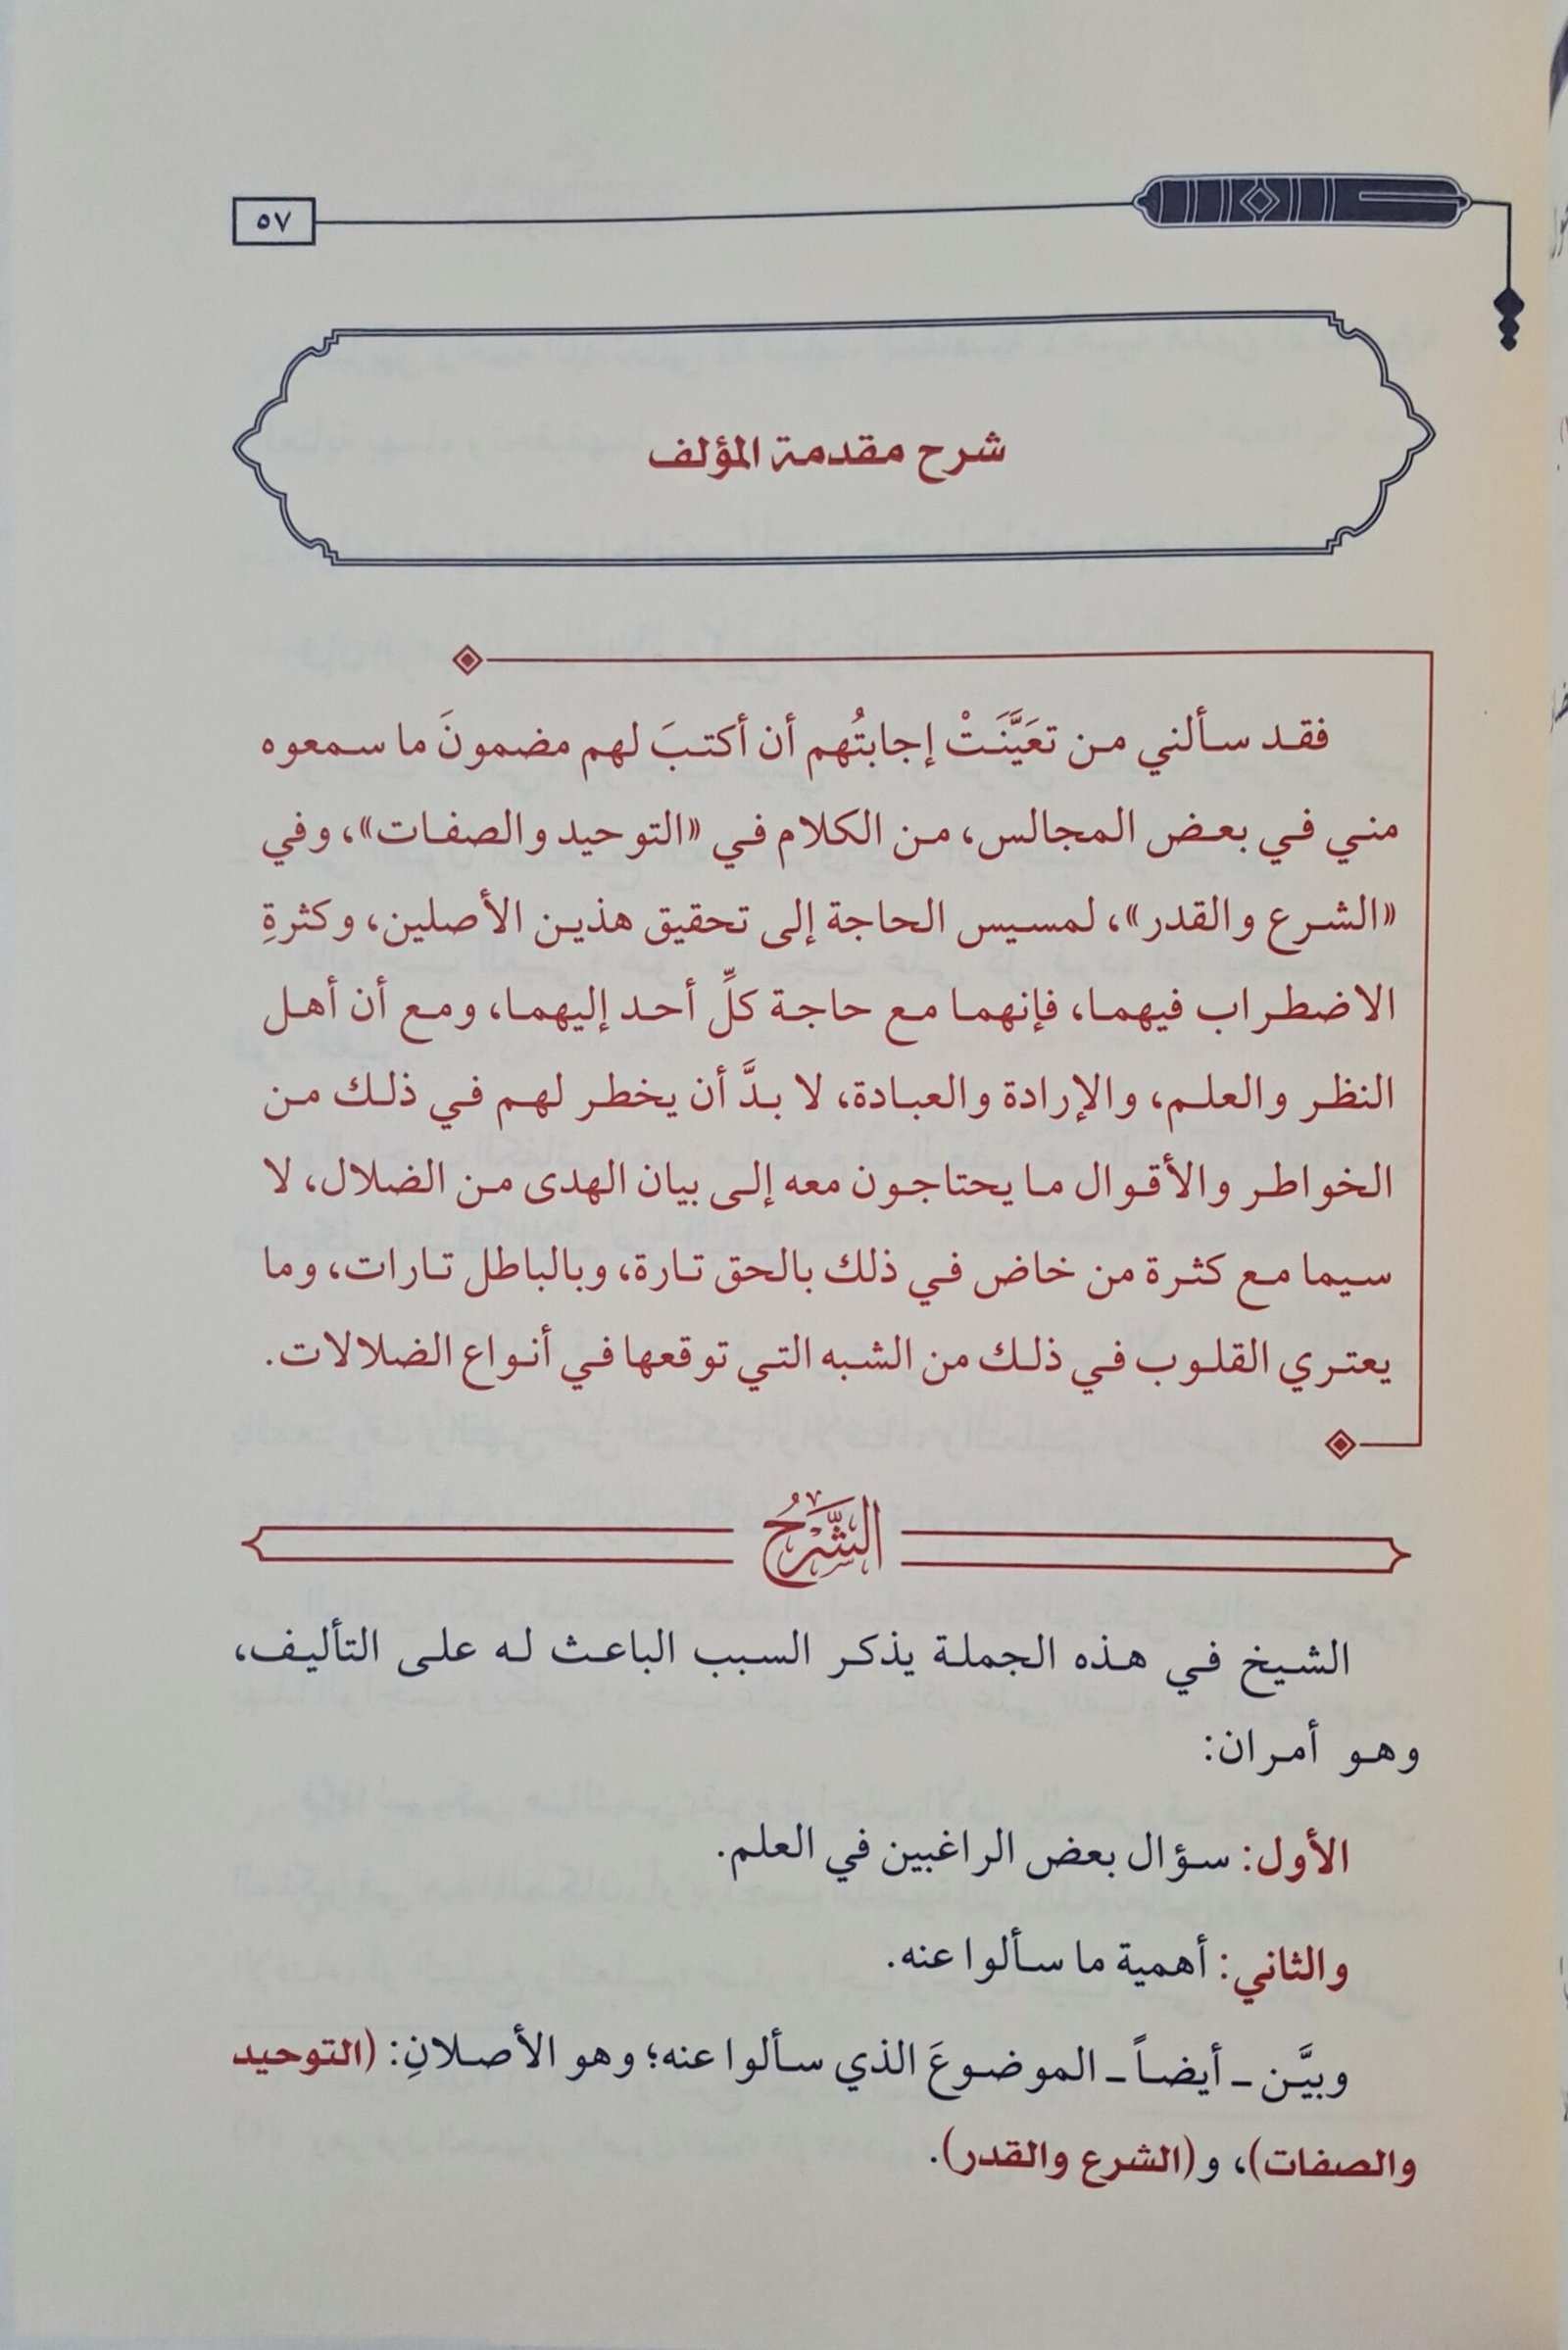 ٥٧
شرح مقدمة المؤلف
فقد سألني من تعَيَّنَتْ إجابتُهم أن أكتبَ لهم مضمونَ ما سمعوه
مني في بعض المجالس، من الكلام في «التوحيد والصفات»، وفي
«الشرع والقدر»، لمسيس الحاجة إلى تحقيق هذين الأصلين، وكثرةِ
الاضطراب فيهما، فإنهما مع حاجة كلِّ أحد إليهما، ومع أن أهل
النظر والعلم، والإرادة والعبادة، لا بدَّ أن يخطر لهم في ذلك من
الخواطر والأقوال ما يحتاجون معه إلى بيان الهدى من الضلال، لا
سيما مع كثرة من خاض في ذلك بالحق تارة، وبالباطل تارات، وما
يعتري القلوب في ذلك من الشبه التي توقعها في أنواع الضلالات.
الشَّرْحُ
الشيخ في هذه الجملة يذكر السبب الباعث له على التأليف،
وهو أمران:
الأول: سؤال بعض الراغبين في العلم.
والثاني: أهمية ما سألوا عنه.
وبيَّن ـ أيضاً ـ الموضوعَ الذي سألوا عنه؛ وهو الأصلانِ: (التوحيد
والصفات)، و(الشرع والقدر).